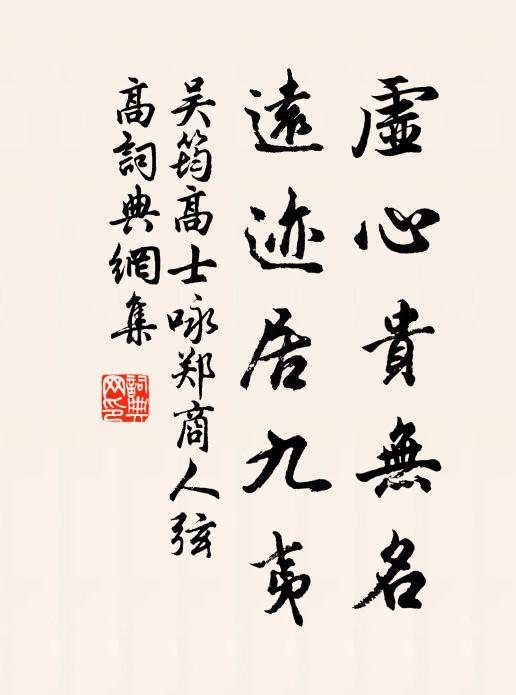 虛心貴無名
遠迹居九夷
吴筠高士咏郑商人弦
高詞典網集
詞典
网印